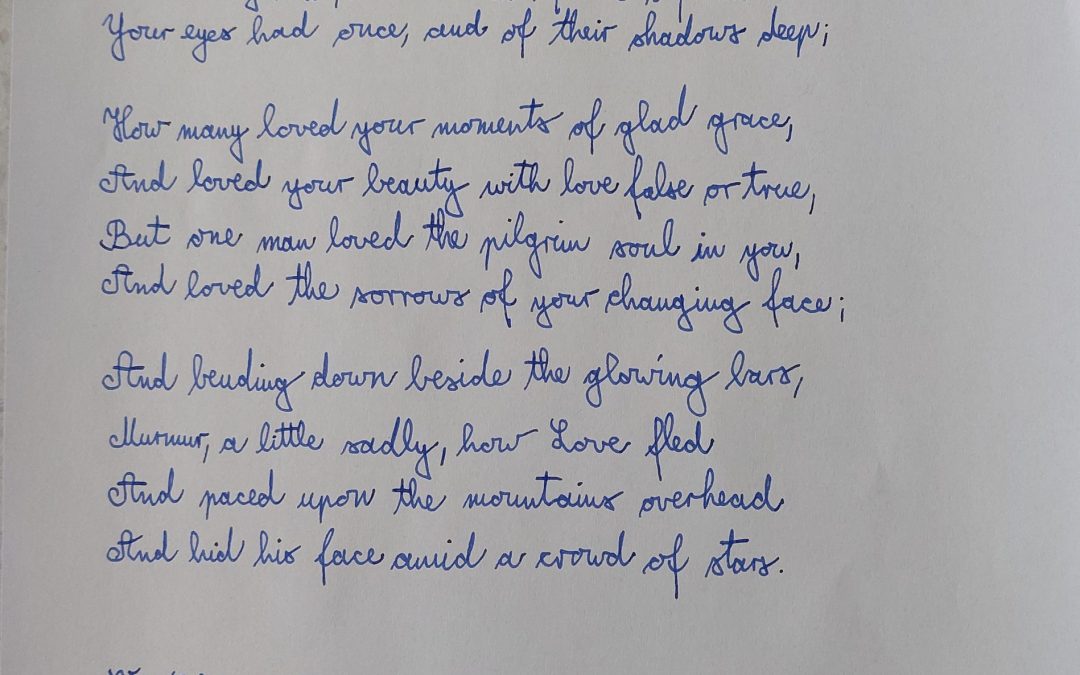 Your eyes had once, and of their shadows deep;
How many loved your moments of glad grace,
And loved your beauty with love false or true,
But one man loved the pilgrim soul in you,
And loved the sorrows of your changing face;
And bending down beside the glowing bars,
Murmur, a little sadly, how Love fled
And paced upon the mountains overhead
And hid his face amid a crowd of stars.